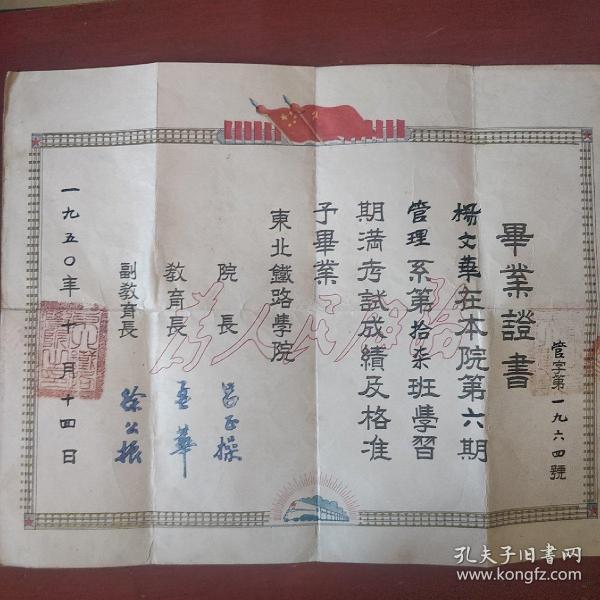 畢業證書
管字第一九六四號
楊文華在本院第六期
管理系第拾柒班學習
期滿考試成績及格准
予畢業
東北鐵路學院
院長 呂正操
教育長 孟華
副教育長 徐公振
一九五〇年十一月十四日
為人民服務
孔夫子旧书网
www.kongfz.com